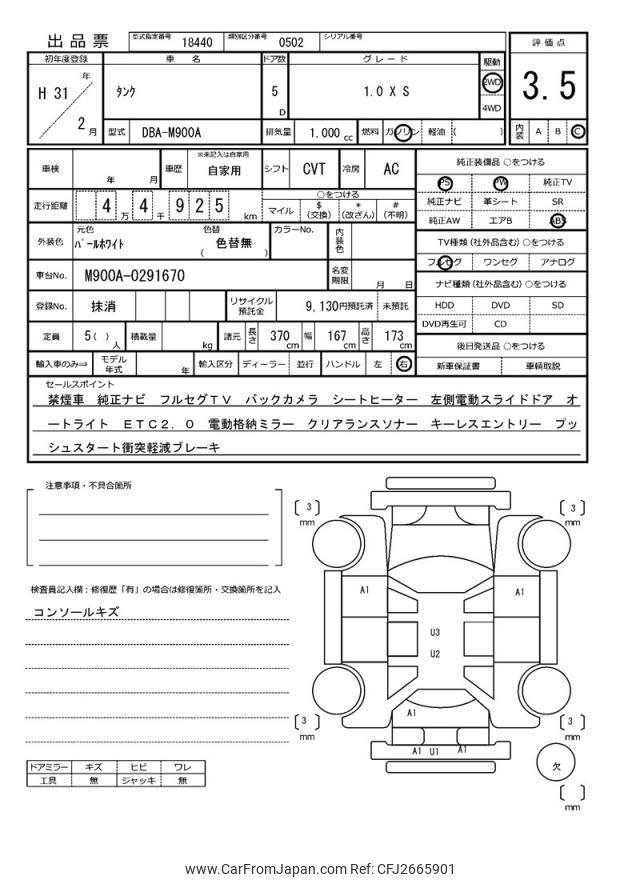 出品票 型式指定番号 18440 類別区分番号 0502 シリアル番号
評価点
3.5
内装 A B C
初年度登録 車名 ドア数 グレード 駆動
H 31 年 2 月
タンク 5 D 1.0 X S 2WD
4WD
型式 DBA-M900A 排気量 1.000 cc 燃料 ガソリン 軽油 ( )
車検 年 月 車歴 ※未記入は自家用 自家用 シフト CVT 冷房 AC
走行距離 4 万 4 千 9 2 5 km
○をつける
マイル $(交換) *(改ざん) #(不明)
外装色 元色 パールホワイト 色替 ( 色替無 ) カラーNo. 内装色
車台No. M900A-0291670 名変期限 月 日
登録No. 抹消 リサイクル預託金 9,130円預託済 未預託
定員 5( ) 人 積載量 kg 諸元 長さ 370 cm 幅 167 cm 高さ 173 cm
輸入車のみ⇒ モデル年式 年 輸入区分 ディーラー 並行 ハンドル 左 右
純正装備品 ○をつける
PS PW 純正TV
純正ナビ 革シート SR
純正AW エアB ABS
TV種類(社外品含む)○をつける
フルセグ ワンセグ アナログ
ナビ種類(社外品含む)○をつける
HDD DVD SD
DVD再生可 CD
後日発送品 ○をつける
新車保証書 車輌取説
セールスポイント
禁煙車 純正ナビ フルセグTV バックカメラ シートヒーター 左側電動スライドドア オ
ートライト ETC2.0 電動格納ミラー クリアランスソナー キーレスエントリー プッ
シュスタート衝突軽減ブレーキ
注意事項・不具合箇所
検査員記入欄：修復歴「有」の場合は修復箇所・交換箇所を記入
コンソールキズ
ドアミラー キズ ヒビ ワレ
工具 無 ジャッキ 無
3 mm
3 mm
A1
A1
U3
U2
A1
3 mm
3 mm
A1 U1 A1
欠
mm
www.CarFromJapan.com Ref: CFJ2665901